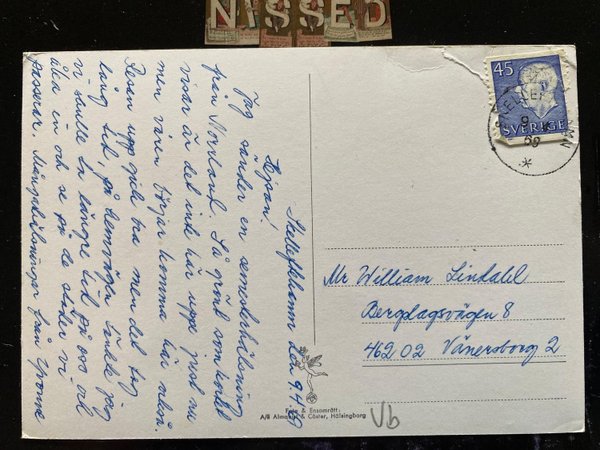 NISSED
Skelleftehamn den 9.4.69
Hejsan!
Jag sänder en semesterhälsning
från Norrland. Så grönt som kortet
visar är det inte här uppe just nu
men våren börjar komma här också.
Resan upp gick bra men det tog
lång tid, på hemvägen tänkte jag
vi skulle ta längre tid på oss och
åka in och se på de städer vi
passerar. Många hälsningar från Yvonne
45
SVERIGE
SKELLEFTEHAMN
9 4
69
Mr William Lindahl
Bergslagsvägen 8
462 02 Vänersborg 2
Foto & Ensamrätt:
A/B Almquist & Cöster, Hälsingborg
Vb